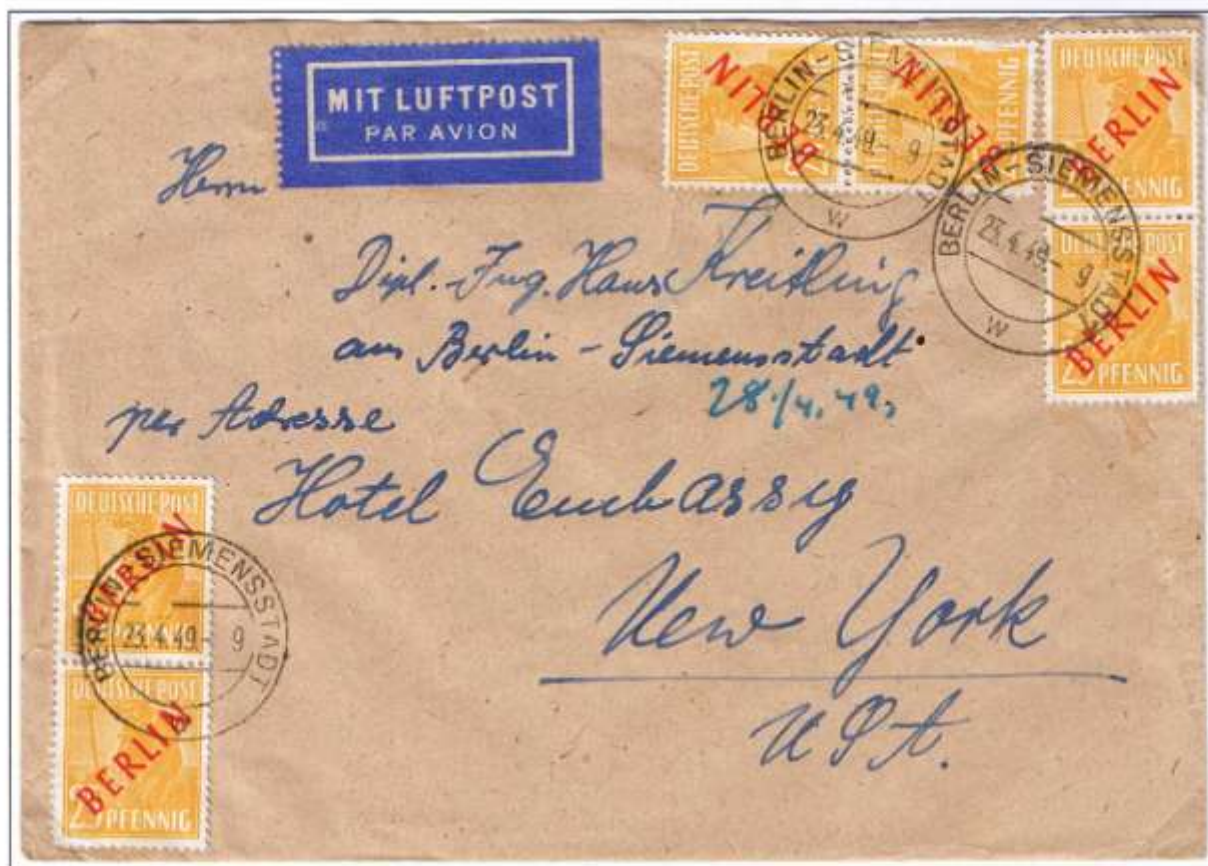 MIT LUFTPOST
PAR AVION
DEUTSCHE POST
BERLIN
BERLIN
PFENNIG
DEUTSCHE POST
BERLIN
PFENNIG
DEUTSCHE POST
BERLIN
25 PFENNIG
BERLIN-SIEMENSSTADT
23.4.49-9
W
BERLIN-SIEMENSSTADT
23.4.49-9
W
Herrn
Dipl.-Ing. Hans Kreitling
aus Berlin-Siemensstadt
28./4.49.
per Adresse
Hotel Embassy
New York
USA.
DEUTSCHE POST
BERLIN
DEUTSCHE POST
BERLIN
25 PFENNIG
BERLIN-SIEMENSSTADT
23.4.49-9